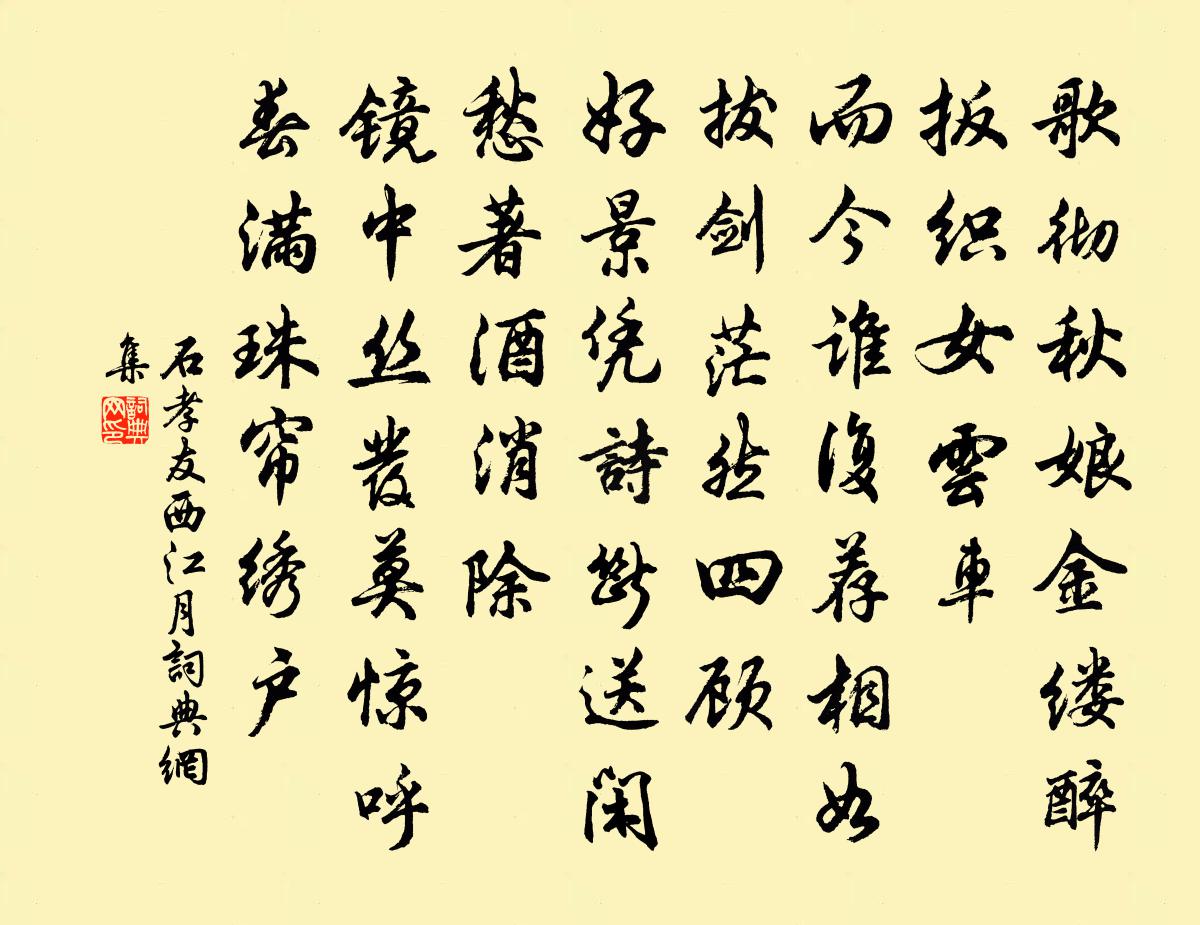 歌彻秋娘金缕醉
扳织女雲車
而今谁復荐相如
拔剑茫然四顾
好景凭詩断送闲
愁著酒消除
镜中丝发莫惊呼
春满珠帘绣户
石孝友西江月詞典網
集
詞典网印